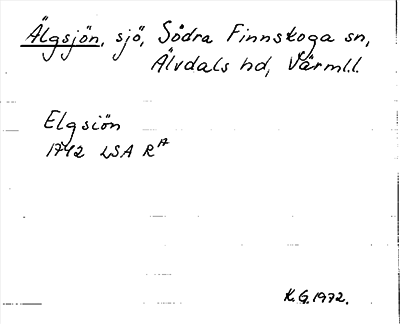 Älgsjön, sjö, Södra Finnskoga sn,
Älvdals hd, Värml.l.
Elgsiön
1742 LSA R17
K.G.1972.